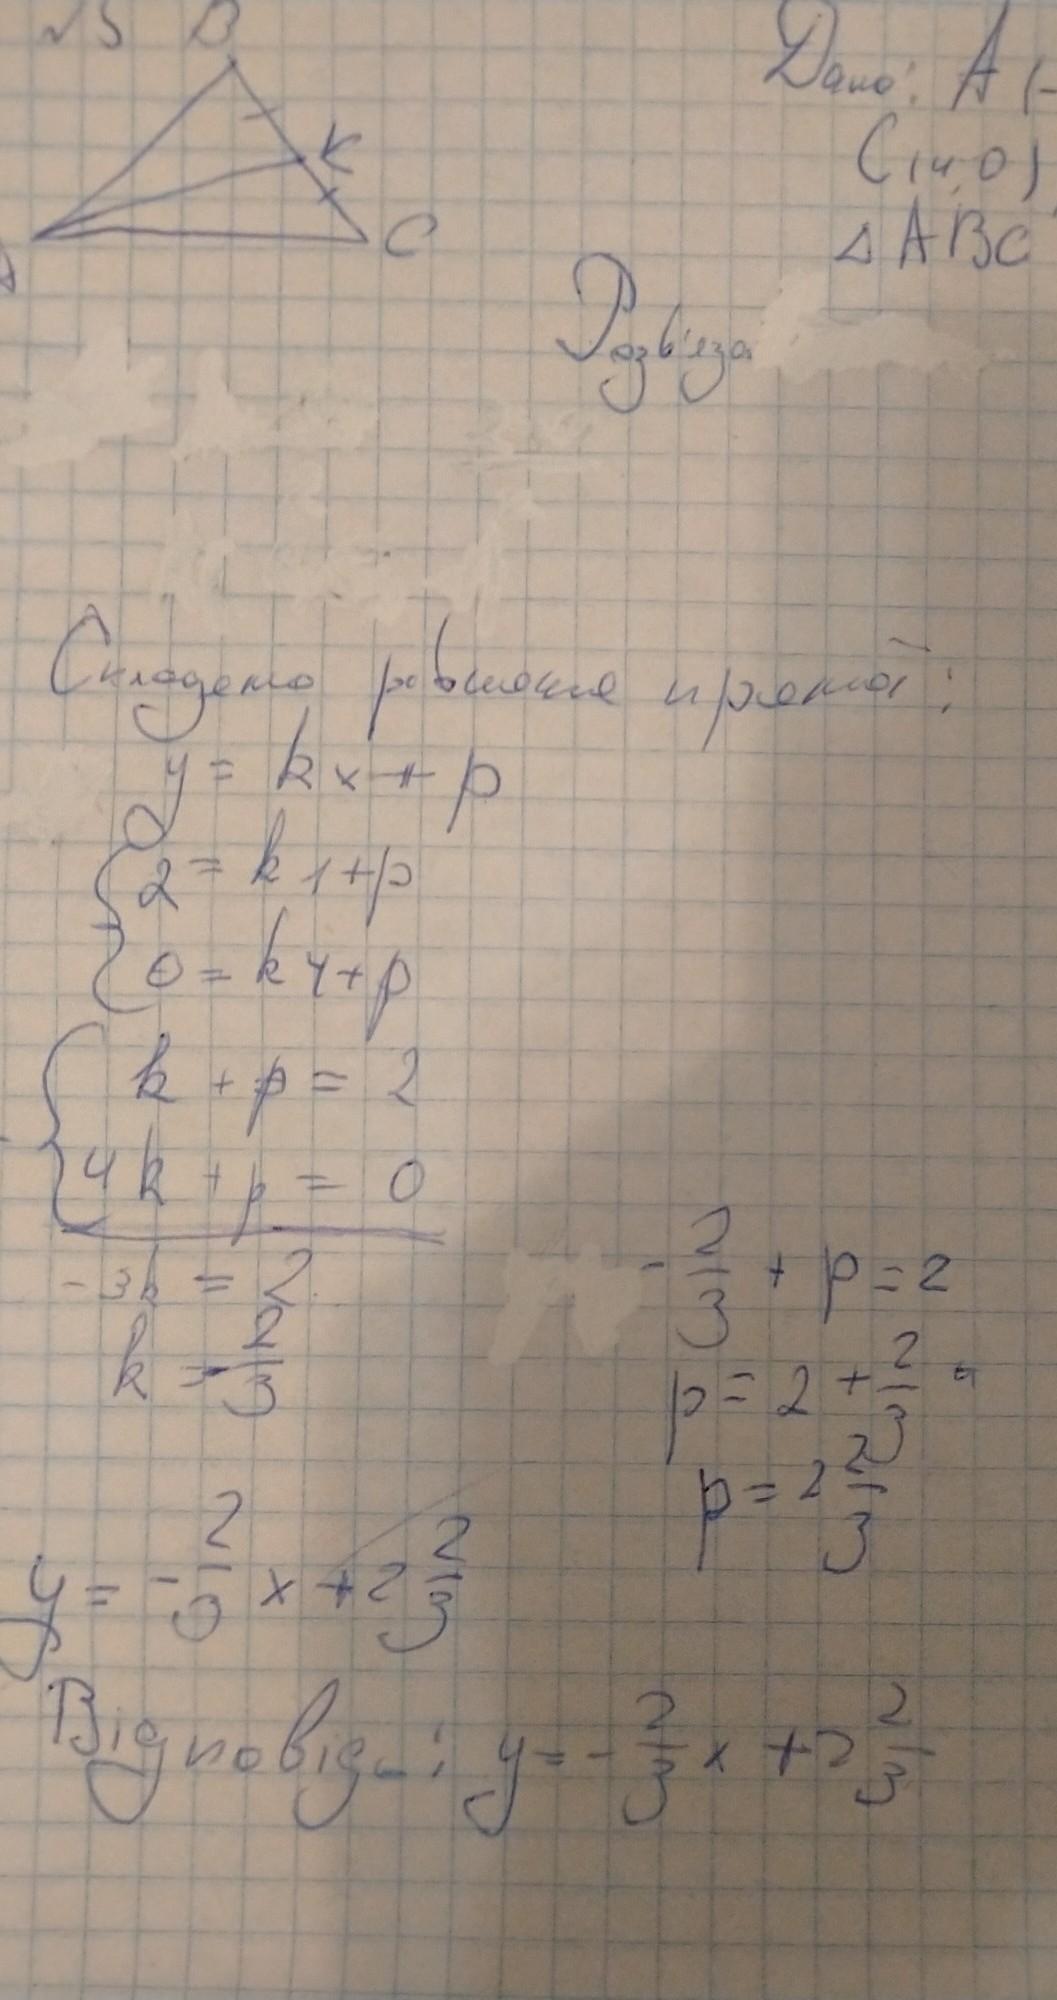 №5 B
Дано: A (-
K
C (4,0)
C
△ABC
A
Розв'яза
Складемо рівняння прямої:
y = kx + p
2 = k1 + p
0 = k4 + p
k + p = 2
4k + p = 0
-3k = 2
k = -2/3
-2/3 + p = 2
p = 2 + 2/3
p = 2 2/3
y = -2/3 x + 2 2/3
Відповідь: y = -2/3 x + 2 2/3